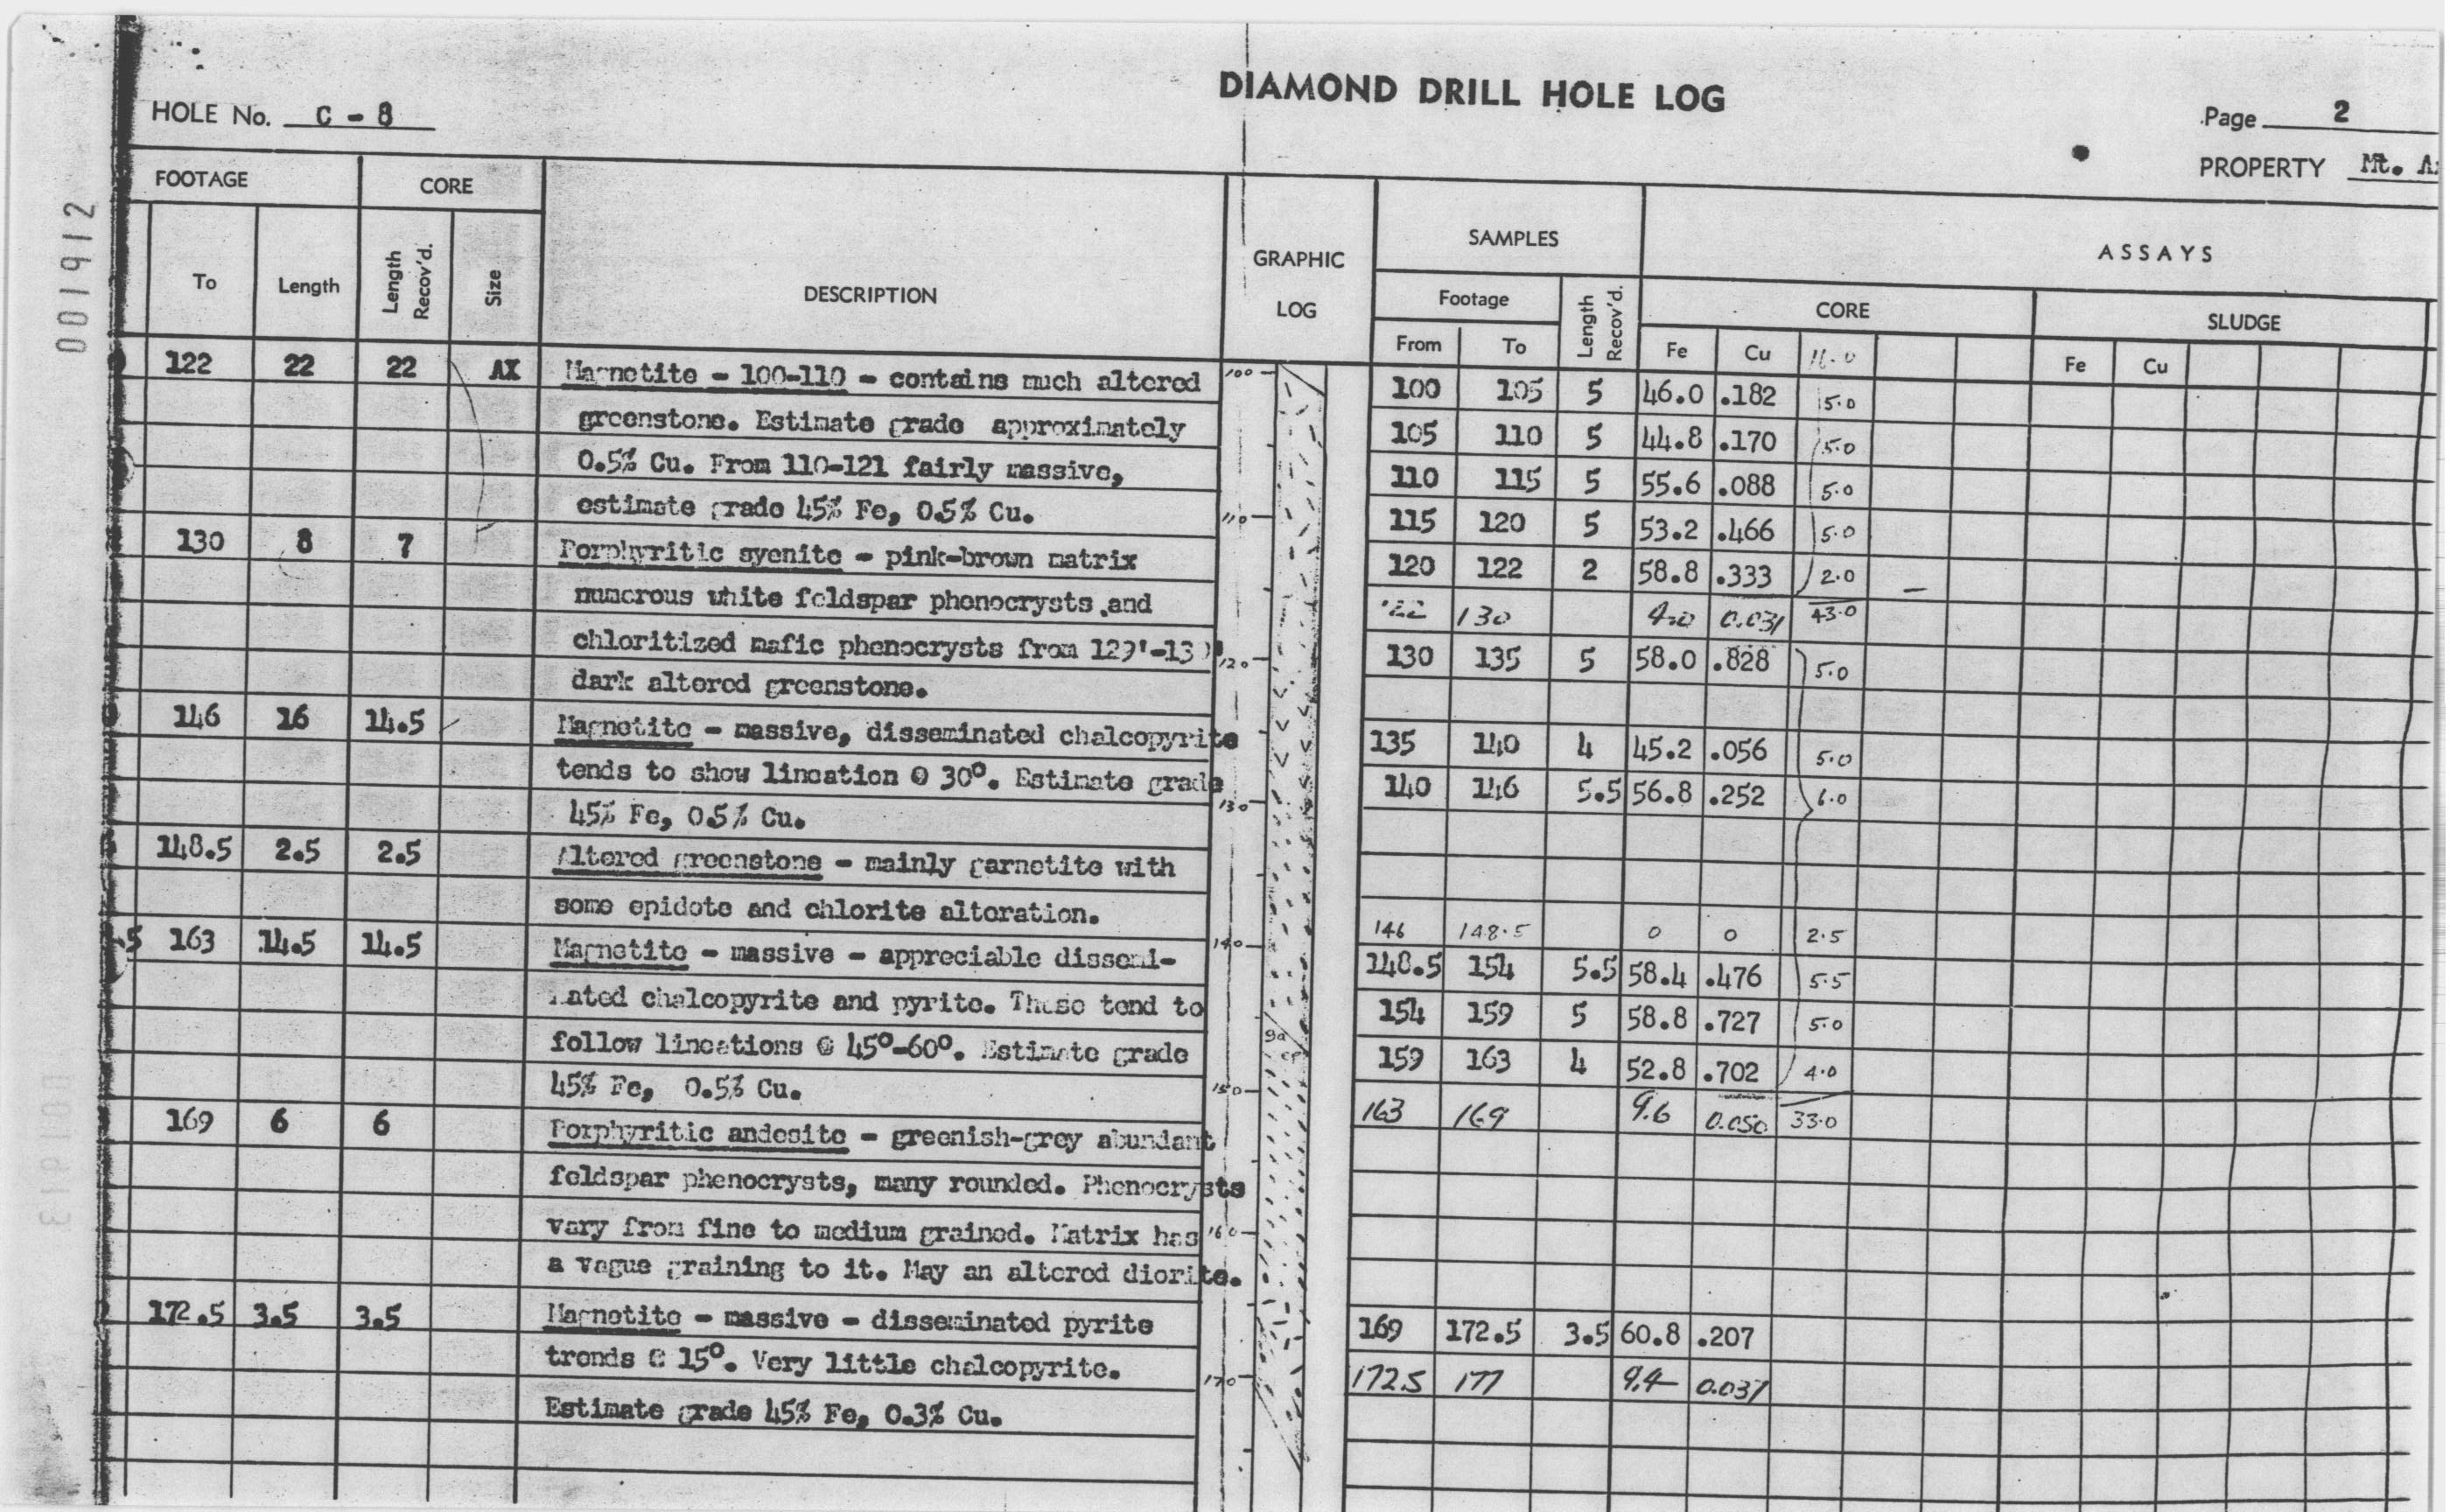 DIAMOND DRILL HOLE LOG
HOLE No. C - 8
Page 2
PROPERTY Mt.
001912
FOOTAGE CORE
To Length Length Recov'd. Size
DESCRIPTION
GRAPHIC LOG
SAMPLES
Footage
From To Length Recov'd.
ASSAYS
CORE SLUDGE
Fe Cu
Fe Cu
122 22 22 AX Magnetite - 100-110 - contains much altered
greenstone. Estimate grade approximately
0.5% Cu. From 110-121 fairly massive,
estimate grade 45% Fe, 0.5% Cu.
130 8 7 Porphyritic syenite - pink-brown matrix
numerous white feldspar phenocrysts and
chloritized mafic phenocrysts from 129'-130'
dark altered greenstone.
146 16 14.5 Magnetite - massive, disseminated chalcopyrite
tends to show lineation @ 30°. Estimate grade
45% Fe, 0.5% Cu.
148.5 2.5 2.5 Altered greenstone - mainly garnetite with
some epidote and chlorite alteration.
.5 163 14.5 14.5 Magnetite - massive - appreciable dissemi-
nated chalcopyrite and pyrite. These tend to
follow lineations @ 45°-60°. Estimate grade
45% Fe, 0.5% Cu.
169 6 6 Porphyritic andesite - greenish-grey abundant
feldspar phenocrysts, many rounded. Phenocrysts
vary from fine to medium grained. Matrix has
a vague graining to it. May an altered diorite.
172.5 3.5 3.5 Magnetite - massive - disseminated pyrite
trends @ 15°. Very little chalcopyrite.
Estimate grade 45% Fe, 0.3% Cu.
100
110
120
130
140
ga
ep
150
160
170
100 105 5 46.0 .182 5.0
105 110 5 44.8 .170 5.0
110 115 5 55.6 .088 5.0
115 120 5 53.2 .466 5.0
120 122 2 58.8 .333 2.0
122 130 4.0 0.031 43.0
130 135 5 58.0 .828 5.0
135 140 4 45.2 .056 5.0
140 146 5.5 56.8 .252 6.0
146 148.5 0 0 2.5
148.5 154 5.5 58.4 .476 5.5
154 159 5 58.8 .727 5.0
159 163 4 52.8 .702 4.0
163 169 9.6 0.050 33.0
169 172.5 3.5 60.8 .207
172.5 177 9.4 0.037
001913